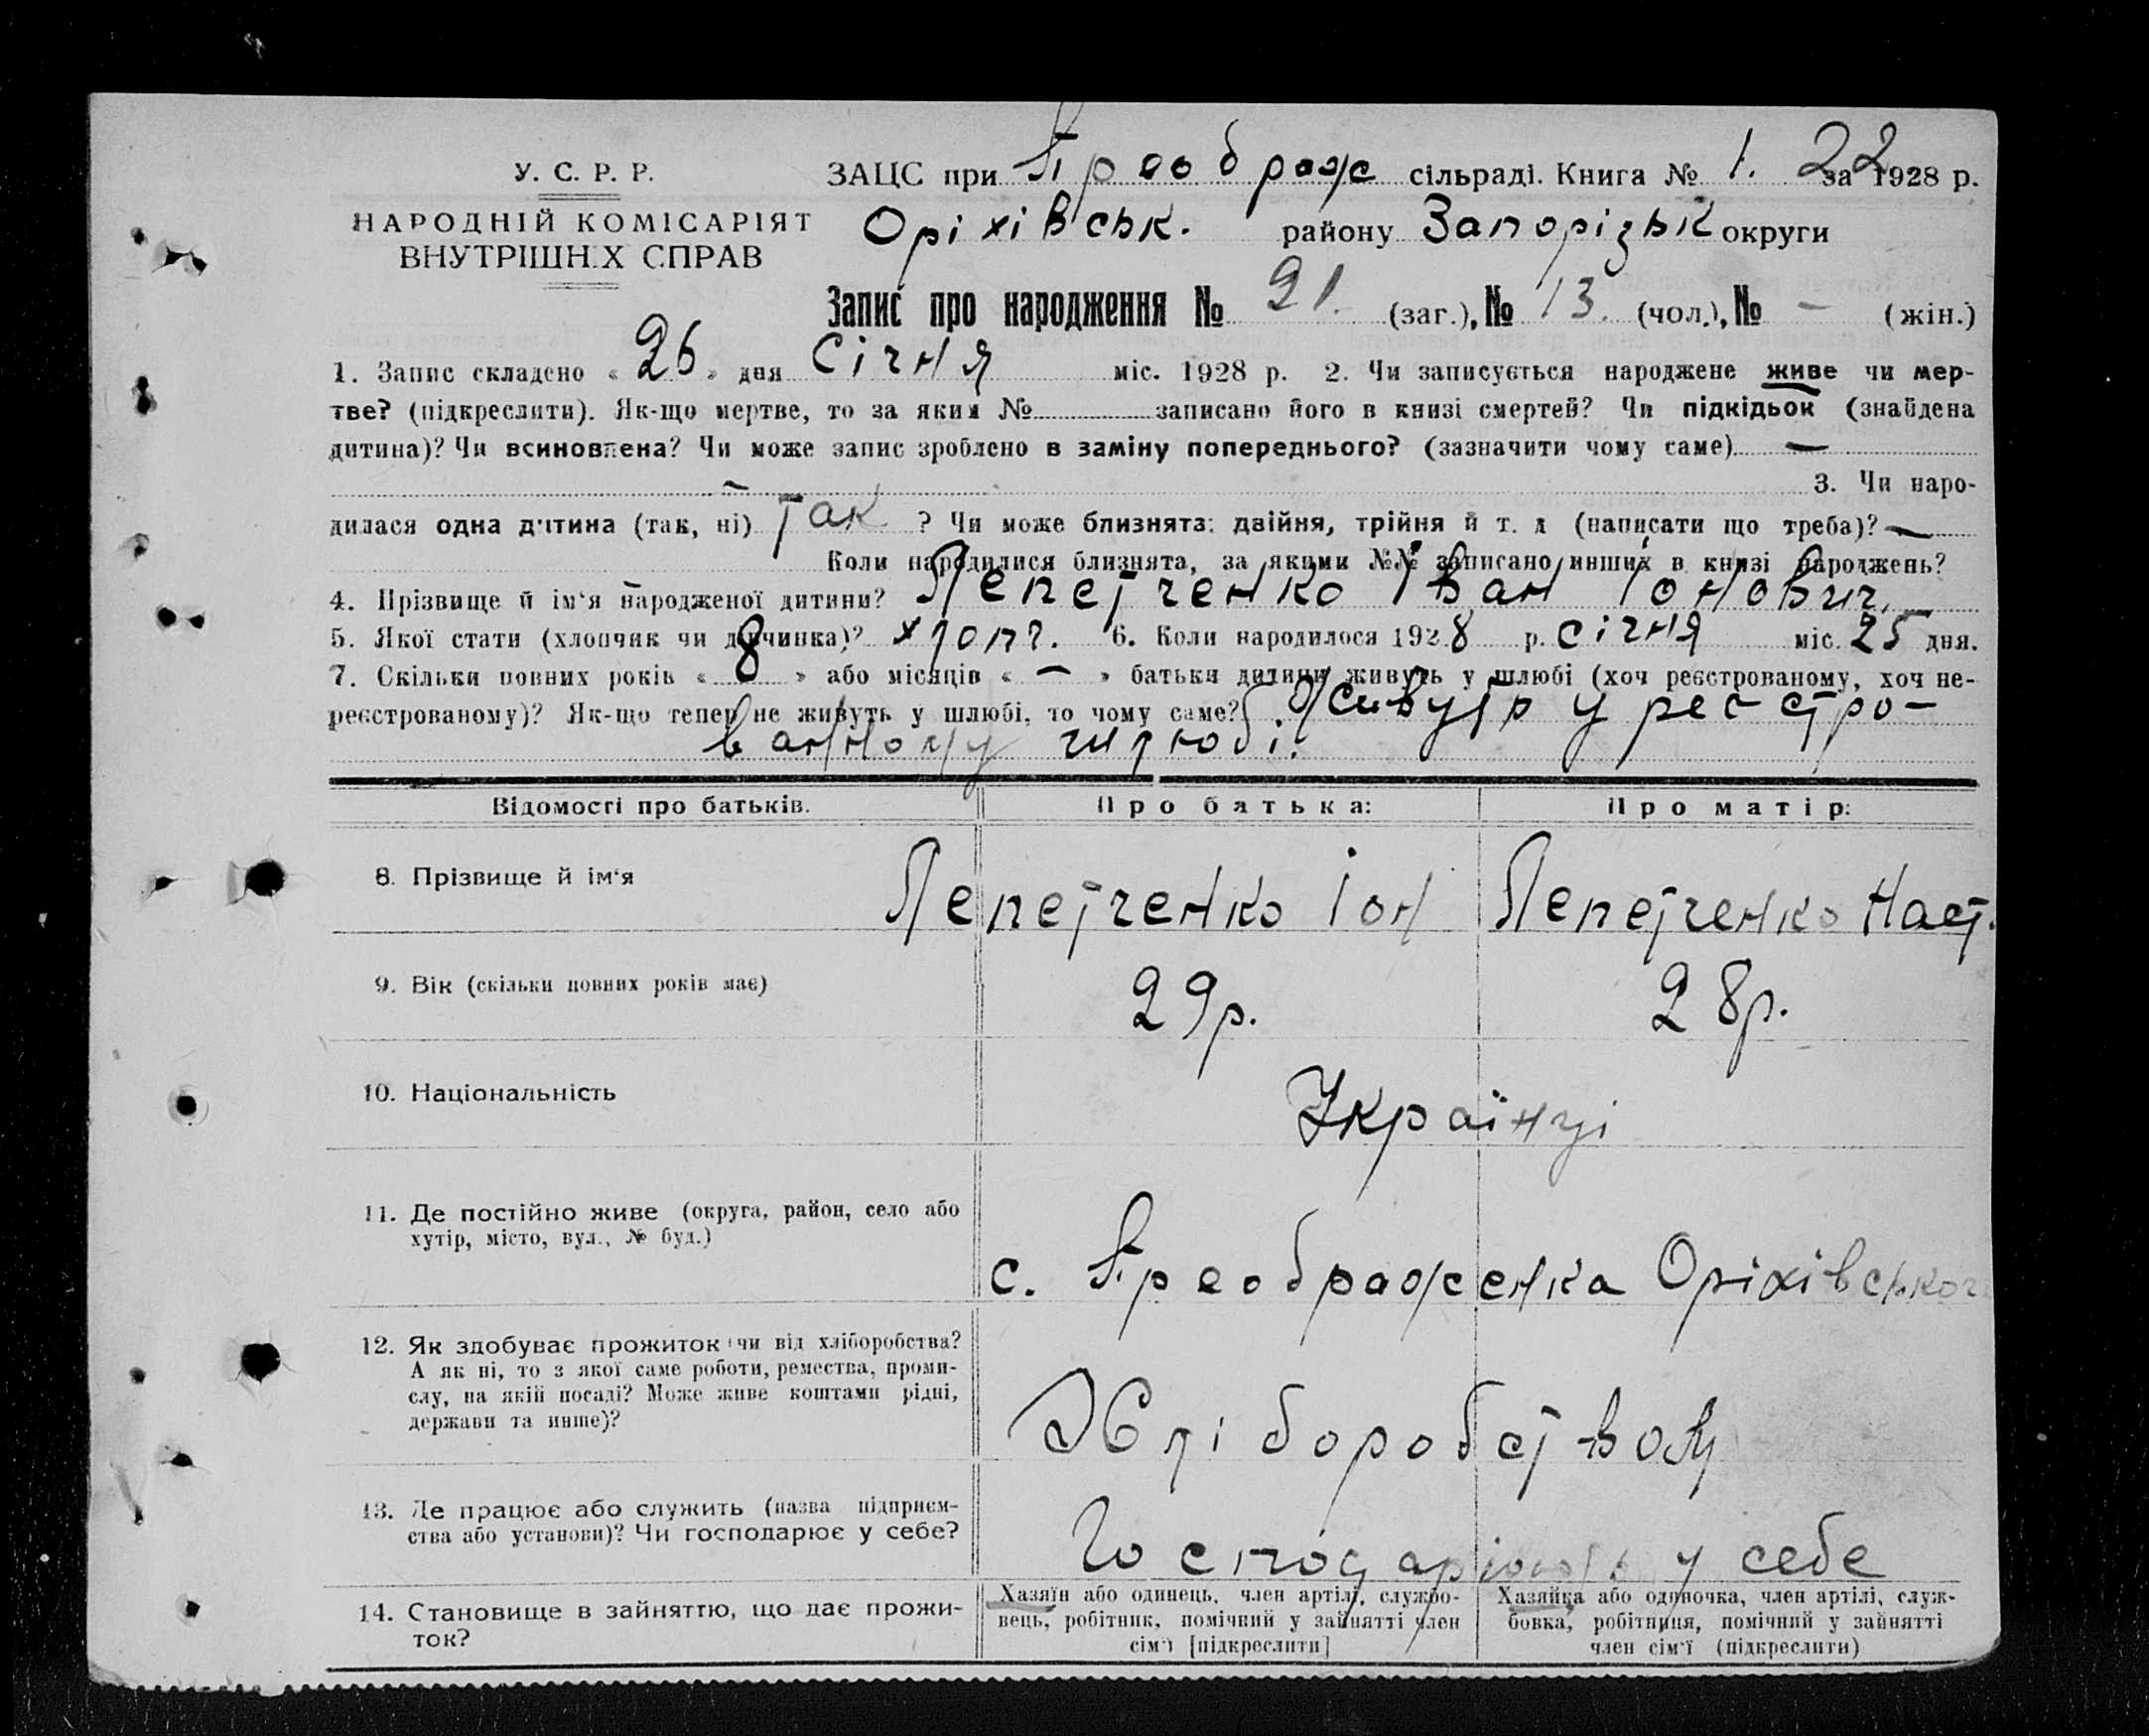 У. С. Р. Р.
НАРОДНІЙ КОМІСАРІЯТ
ВНУТРІШНІХ СПРАВ
ЗАЦС при Преображ сільраді. Книга № 1. за 1928 р.
22
Оріхівськ. району Запорізьк округи
Запис про народження № 21. (заг.), № 13. (чол.), № — (жін.)
1. Запис складено « 26 » дня Січня міс. 1928 р. 2. Чи записується народжене живе чи мер-
тве? (підкреслити). Як-що мертве, то за яким № записано його в книзі смертей? Чи підкідьок (знайдена
дитина)? Чи всиновлена? Чи може запис зроблено в заміну попереднього? (зазначити чому саме) —
— 3. Чи наро-
дилася одна дитина (так, ні) Так ? Чи може близнята: двійня, трійня й т. д (написати що треба)? —
Коли народилися близнята, за якими №№ записано инших в книзі народжень?
4. Прізвище й ім‘я народженої дитини? Лепетченко Іван Іонович.
5. Якої стати (хлопчик чи дівчинка)? хлопч. 6. Коли народилося 1928 р. січня міс. 25 дня.
7. Скільки повних років « 8 » або місяців « — » батьки дитини живуть у шлюбі (хоч реєстрованому, хоч не-
реєстрованому)? Як-що тепер не живуть у шлюбі, то чому саме? Живуть у реєстро-
ванному шлюбі.
Відомості про батьків.
Про батька:
Про матір:
8. Прізвище й ім‘я
Лепетченко Іон
Лепетченко Наст.
9. Вік (скільки повних років має)
29р.
28р.
10. Національність
Українці
11. Де постійно живе (округа, район, село або
хутір, місто, вул., № буд.)
с. Преображенка Оріхівського
12. Як здобуває прожиток чи від хліборобства?
А як ні, то з якої саме роботи, ремества, проми-
слу, на якій посаді? Може живе коштами рідні,
держави та инше)?
Хліборобством
13. Де працює або служить (назва підприєм-
ства або установи)? Чи господарює у себе?
Господарюють у себе
14. Становище в зайняттю, що дає прожи-
ток?
Хазяїн або одинець, член артілі, службо-
вець, робітник, помічний у зайнятті член
сім‘ї [підкреслити]
Хазяйка або одиночка, член артілі, служ-
бовка, робітниця, помічний у зайнятті
член сім‘ї (підкреслити)